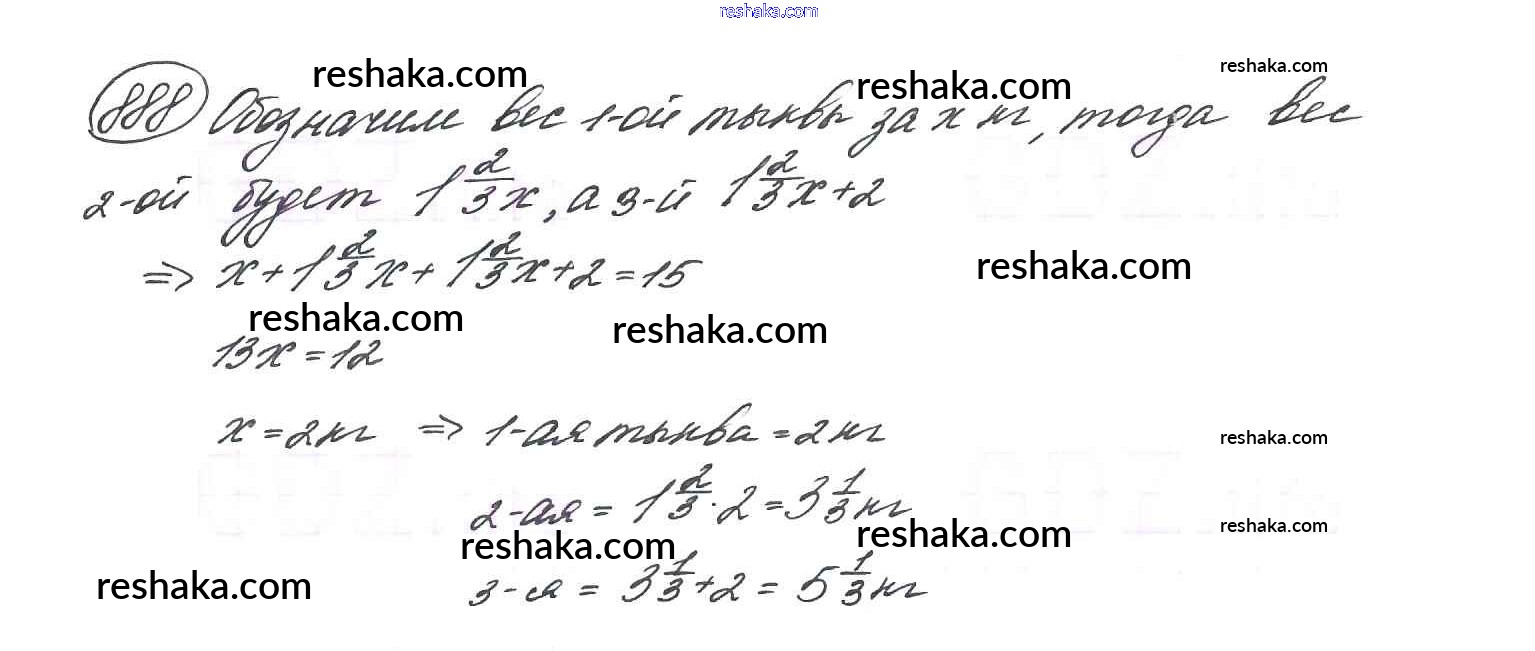 reshaka.com
reshaka.com reshaka.com reshaka.com
888 Обозначим вес 1-ой тыквы за x кг, тогда вес
2-ой будет 1 2/3 x, а 3-й 1 2/3 x + 2
=> x + 1 2/3 x + 1 2/3 x + 2 = 15
reshaka.com
reshaka.com reshaka.com
13x = 12
x = 2 кг => 1-ая тыква = 2 кг
reshaka.com
2-ая = 1 2/3 · 2 = 3 1/3 кг
reshaka.com reshaka.com reshaka.com
3-я = 3 1/3 + 2 = 5 1/3 кг
reshaka.com